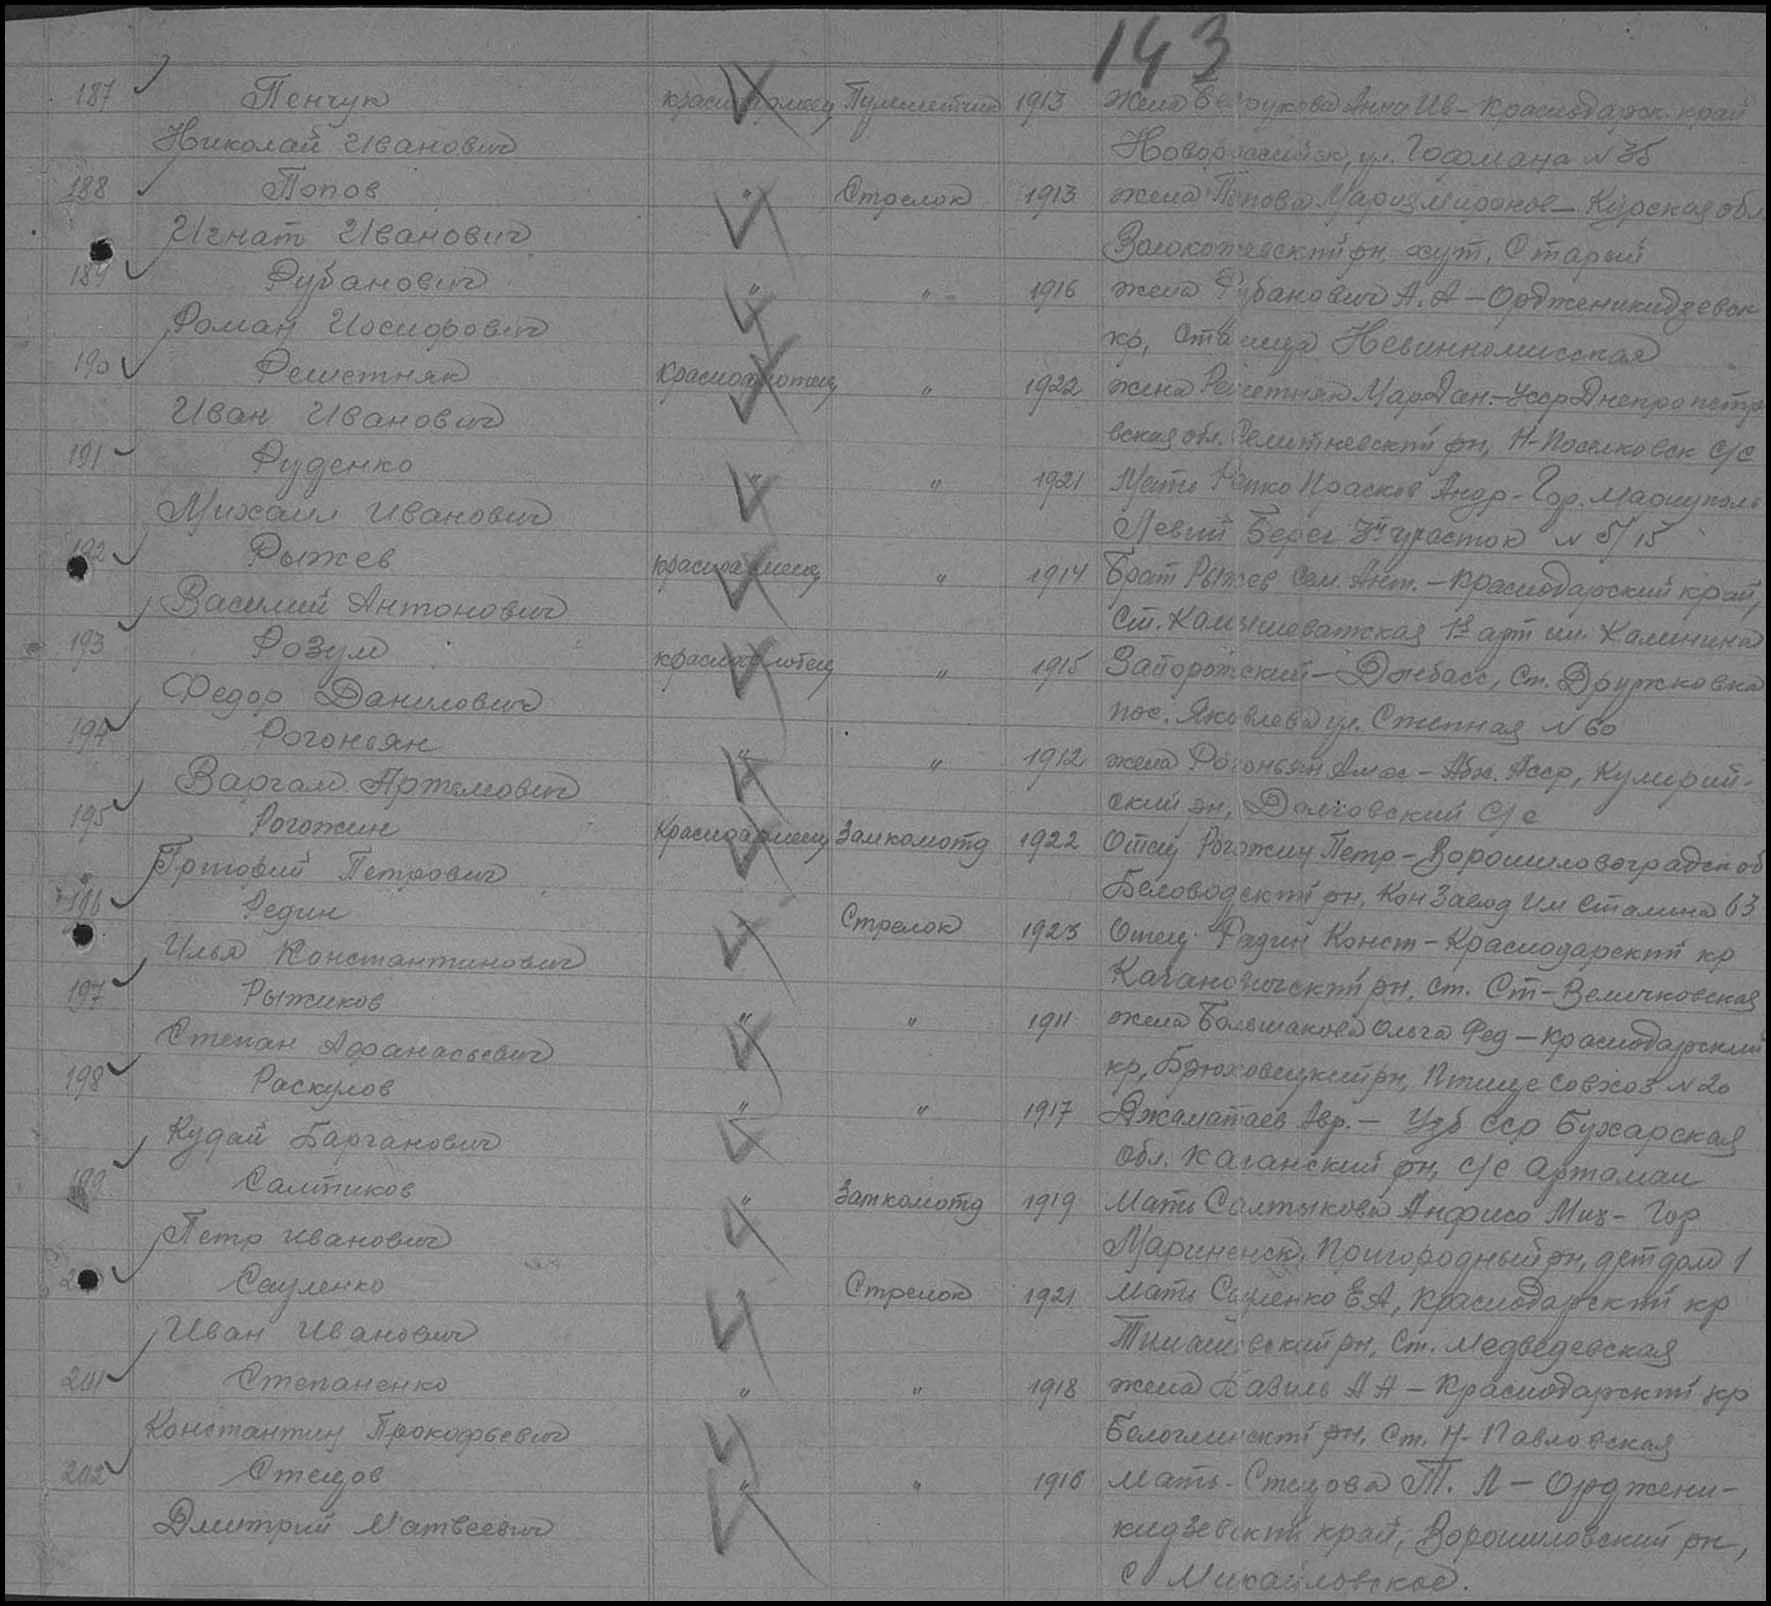 143
187 Пенчук красноармеец Пулеметчик 1913 жена Анна Ив - Краснодарск. край
Николай Иванович Новороссийск, ул. Гофмана N 35
188 Попов " Стрелок 1913 жена Попова Мария Миронов - Курская обл
Игнат Иванович рн хут. Старый
189 Рубанович " " 1916 жена Рубанович А. А - Орджоникидзевск
Роман Иосифович кр, Станица Невинномисская
190 Решетняк Краснофлотец " 1922 жена Решетняк Мар Дан. - Усср Днепропетро
Иван Иванович вская обл. рн, Н-Поселковск С/с
191 Руденко " " 1921 Мать Прасков Андр - Гор. Мариуполь
Михаил Иванович Левий Берег участок N 5/15
192 Рыжев красноармеец " 1914 Брат Рыжев Сем. Ант. - Краснодарский край,
Василий Антонович Ст. Камышеватская арт им. Калинина
193 Розум краснофлотец " 1915 Запорожский - Донбасс, Ст. Дружковка
Федор Данилович пос. Яковлева ул. Степная N 60
194 Рогоньян " " 1912 жена Рогоньян - Абх. Асср,
Варгам Артемович ский рн, Долговский С/с
195 Рогожин Красноармеец Замкомотд 1922 Отец Рогожин Петр - Ворошиловоградск об
Григорий Петрович Беловодский рн, Кон Завод Им Сталина 63
196 Редин Стрелок 1923 Отец Редин Конст - Краснодарский кр
Илья Константинович рн, ст. Ст-Величковская
197 Рыжиков " " 1911 жена Большакова Ольга Фед - Краснодарский
Степан Афанасьевич кр, Брюховецкий рн, Птице совхоз N 20
198 Раскулов " " 1917 Джаматаев Авр. - Узб сср Бухарская
Кудай Барганович Обл. Каганский рн, С/с Артаман
199 Салтиков " Замкомотд 1919 Мать Салтыкова Анфиса Мих - Гор
Петр Иванович Пригородный рн, дет дом 1
Сауленко " Стрелок 1921 Мать Сауленко Е А, Краснодарский кр
Иван Иванович Тимашевский рн, Ст. Медведевская
201 Степаненко " " 1918 жена А А - Краснодарский кр
Константин Прокофьевич Белоглинский рн, Ст. Н-Павловская
202 Стецов " " 1916 Мать - Стецова Т. Л - Орджени-
Дмитрий Матвеевич кидзевский край, Ворошиловский рн,
С Михайловское.